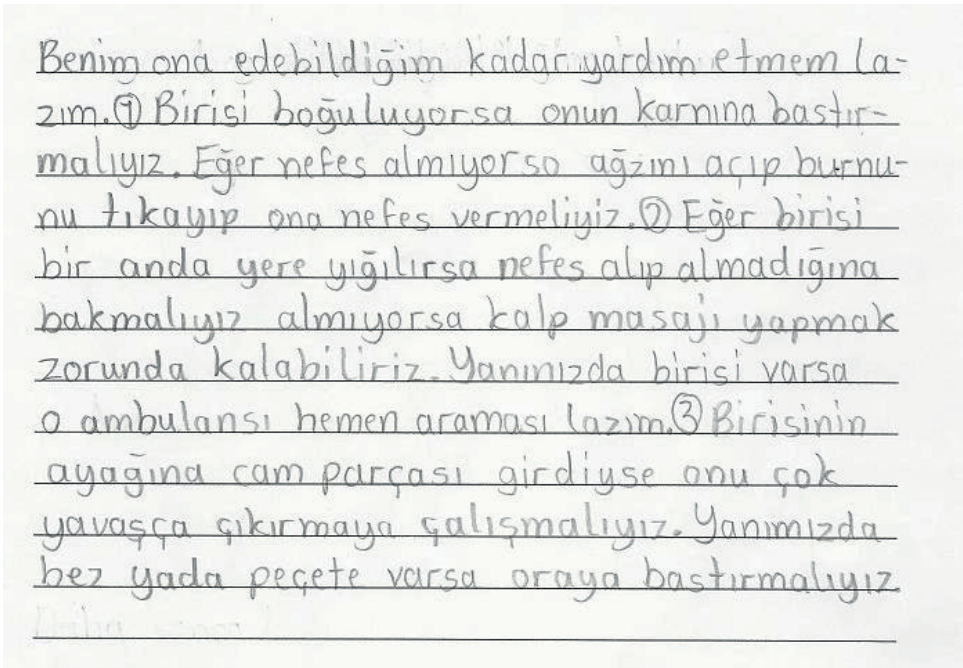 Benim ona edebildiğim kadar yardım etmem la-
zım.① Birisi boğuluyorsa onun karnına bastır-
malıyız. Eğer nefes almıyorsa ağzını açıp burnu-
nu tıkayıp ona nefes vermeliyiz.② Eğer birisi
bir anda yere yığılırsa nefes alıp almadığına
bakmalıyız almıyorsa kalp masajı yapmak
zorunda kalabiliriz. Yanınızda birisi varsa
o ambulansı hemen araması lazım.③ Birisinin
ayağına cam parçası girdiyse onu çok
yavaşça çıkırmaya çalışmalıyız. Yanımızda
bez yada peçete varsa oraya bastırmalıyız.